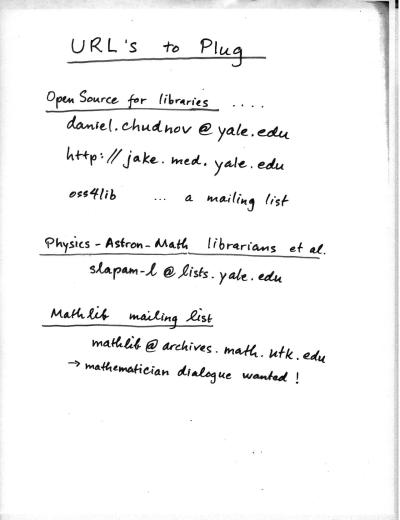 URL's to Plug
Open Source for libraries ....
daniel.chudnov @ yale.edu
http://jake.med.yale.edu
oss4lib ... a mailing list
Physics-Astron-Math librarians et al.
slapam-l @ lists.yale.edu
Mathlib mailing list
mathlib @ archives.math.utk.edu
→ mathematician dialogue wanted!